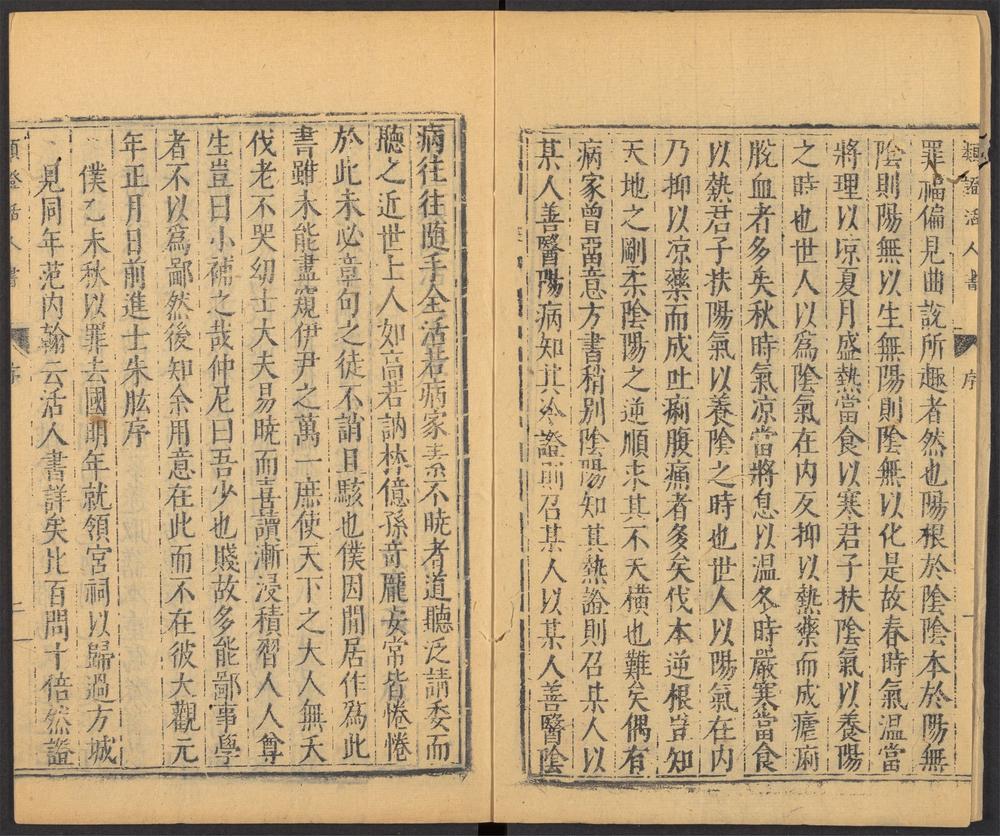 類證活人書 序 一
罪福偏見曲說所趣者然也陽根於陰陰本於陽無
陰則陽無以生無陽則陰無以化是故春時氣溫當
將理以凉夏月盛熱當食以寒君子扶陰氣以養陽
之時也世人以爲陰氣在內反抑以熱藥而成瘧痢
脫血者多矣秋時氣凉當將息以溫冬時嚴寒當食
以熱君子扶陽氣以養陰之時也世人以陽氣在內
乃抑以凉藥而成吐痢腹痛者多矣伐本逆根豈知
天地之剛柔陰陽之逆順求其不夭橫也難矣偶有
病家曾畱意方書稍別陰陽知其熱證則召某人以
某人善醫陽病知其冷證則召某人以某人善醫陰
病往往隨手全活若病家素不曉者道聽泛請委而
聽之近世士人如高若訥林億孫竒龐安常皆惓惓
於此未必章句之徒不誚且駭也僕因閒居作爲此
書雖未能盡窺伊尹之萬一庶使天下之大人無夭
伐老不哭幼士大夫易曉而喜讀漸浸積習人人尊
生豈曰小補之哉仲尼曰吾少也賤故多能鄙事學
者不以爲鄙然後知余用意在此而不在彼大觀元
年正月日前進士朱肱序
僕乙未秋以罪去國明年就領宮祠以歸過方城
見同年范內翰云活人書詳矣比百問十倍然證
類證活人書 序 二